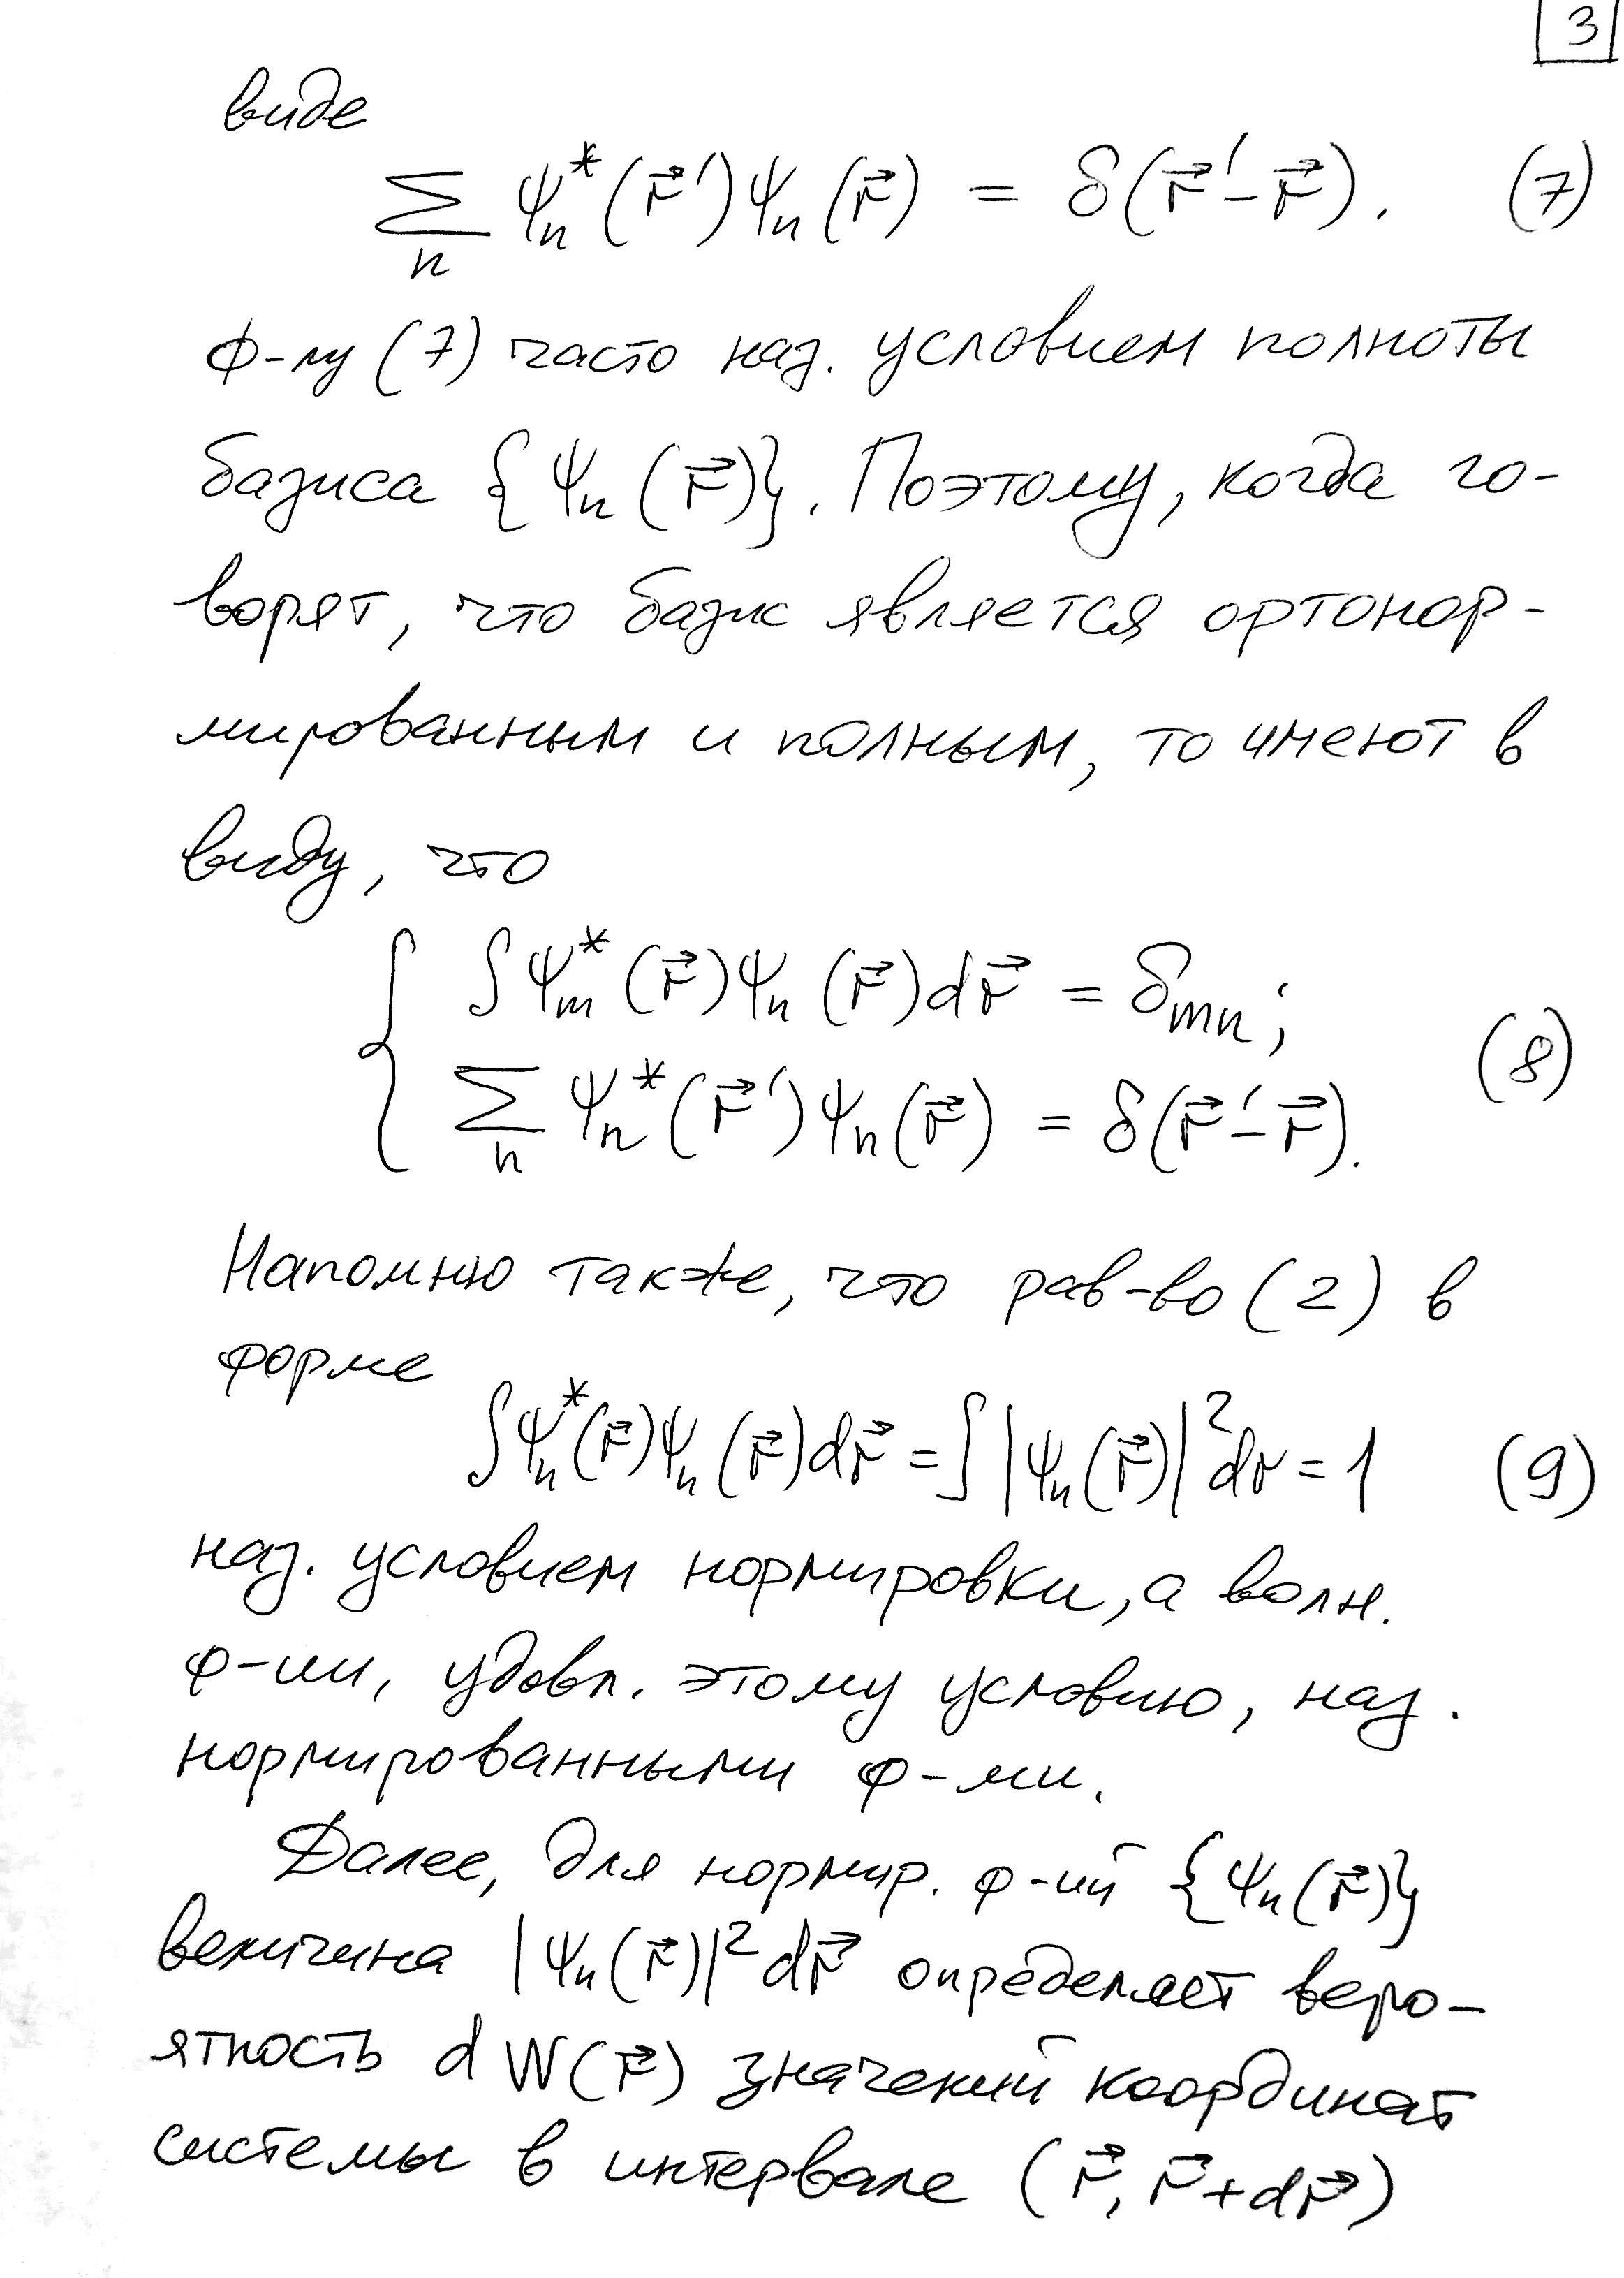 3
виде
∑ₙ ψₙ*(r⃗')ψₙ(r⃗) = δ(r⃗'−r⃗). (7)
Ф-лу (7) часто наз. условием полноты
базиса {ψₙ(r⃗)}. Поэтому, когда го-
ворят, что базис является ортонор-
мированным и полным, то имеют в
виду, что
∫ψₘ*(r⃗)ψₙ(r⃗)dr⃗ = δₘₙ;
∑ₙ ψₙ*(r⃗')ψₙ(r⃗) = δ(r⃗'−r⃗). (8)
Напомню также, что рав-во (2) в
форме
∫ψₙ*(r⃗)ψₙ(r⃗)dr⃗ = ∫|ψₙ(r⃗)|²dr = 1 (9)
наз. условием нормировки, а волн.
ф-ии, удовл. этому условию, наз.
нормированными ф-ми.
Далее, для нормир. ф-ий {ψₙ(r⃗)}
величина |ψₙ(r⃗)|²dr⃗ определяет веро-
ятность dW(r⃗) значений координат
системы в интервале (r⃗, r⃗+dr⃗)